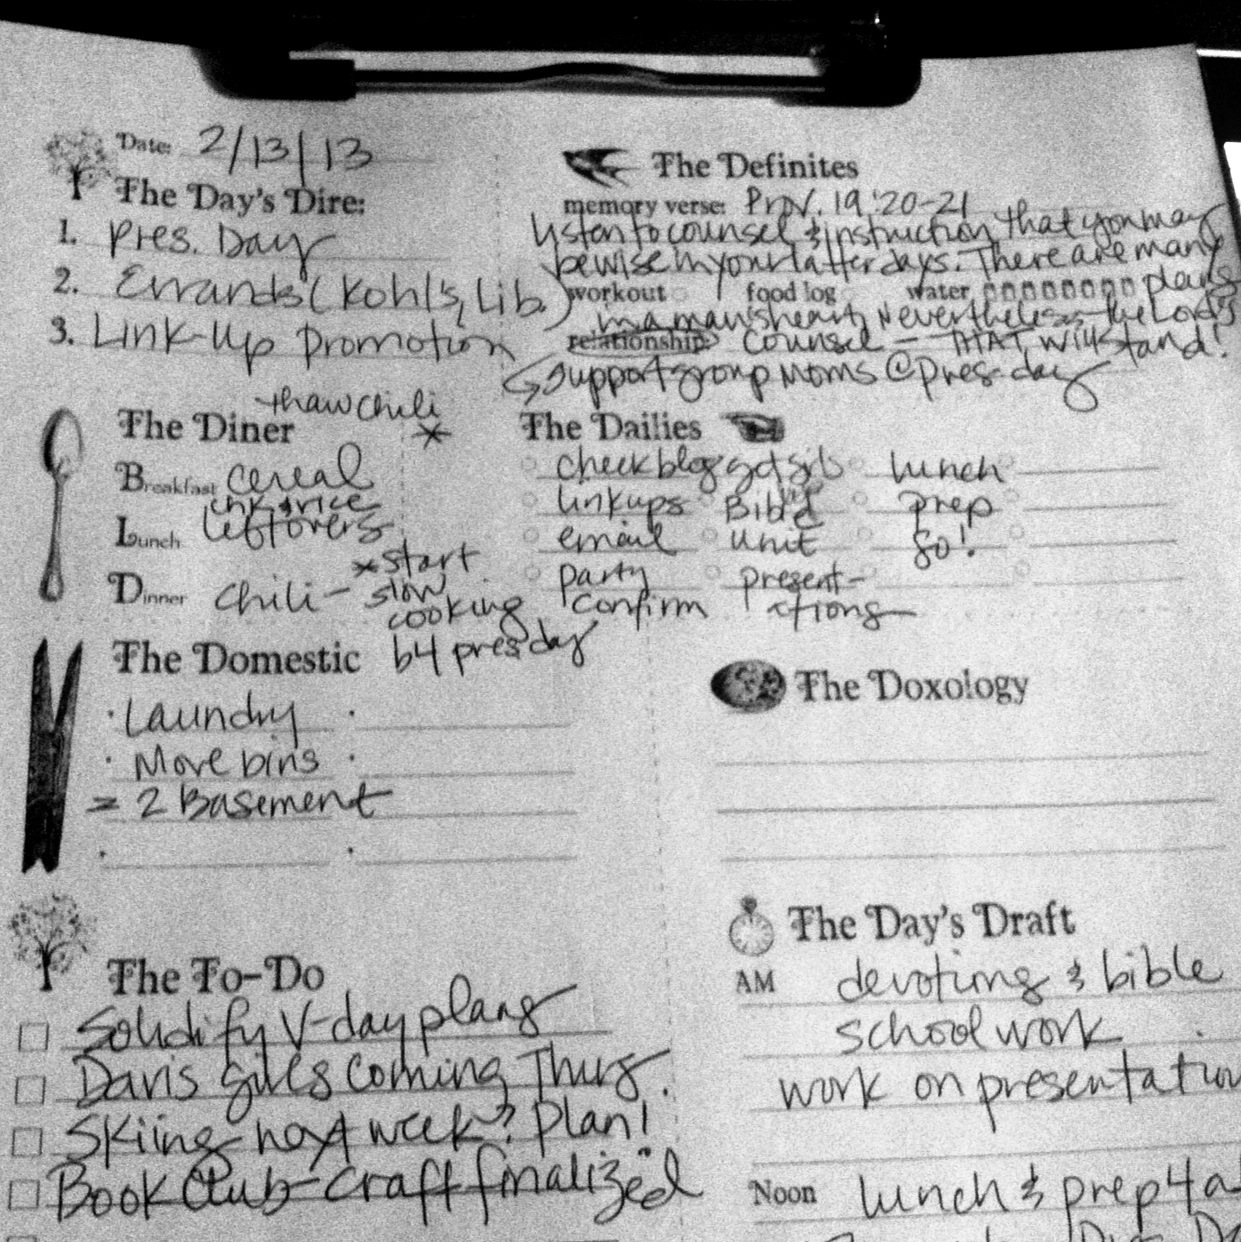 Date: 2/13/13
The Day's Dire:
1. Pres. Day
2. Errands (Kohl's, Lib.)
3. Link-Up Promotion
The Definites
memory verse: Prov. 19:20-21
Listen to counsel & instruction that you may
be wise in your latter days. There are many
workout food log water plans
in a man's heart, Nevertheless the Lord's
relationship: counsel - THAT will stand!
support group moms @ pres. day
thaw chili
The Diner *
Breakfast cereal
chk & rice
Lunch leftovers
Dinner chili - *start
slow
cooking
b4 pres day
The Dailies
check blog lunch
linkups prep
email unit go!
party present-
confirm ations
The Domestic
· Laundry ·
· Move bins ·
= 2 Basement
The Doxology
The To-Do
Solidify V-day plans
Davis girls coming Thurs.
Skiing next week? Plan!
Book Club craft finalized
The Day's Draft
AM devotions & bible
school work
work on presentation
Noon lunch & prep 4 a